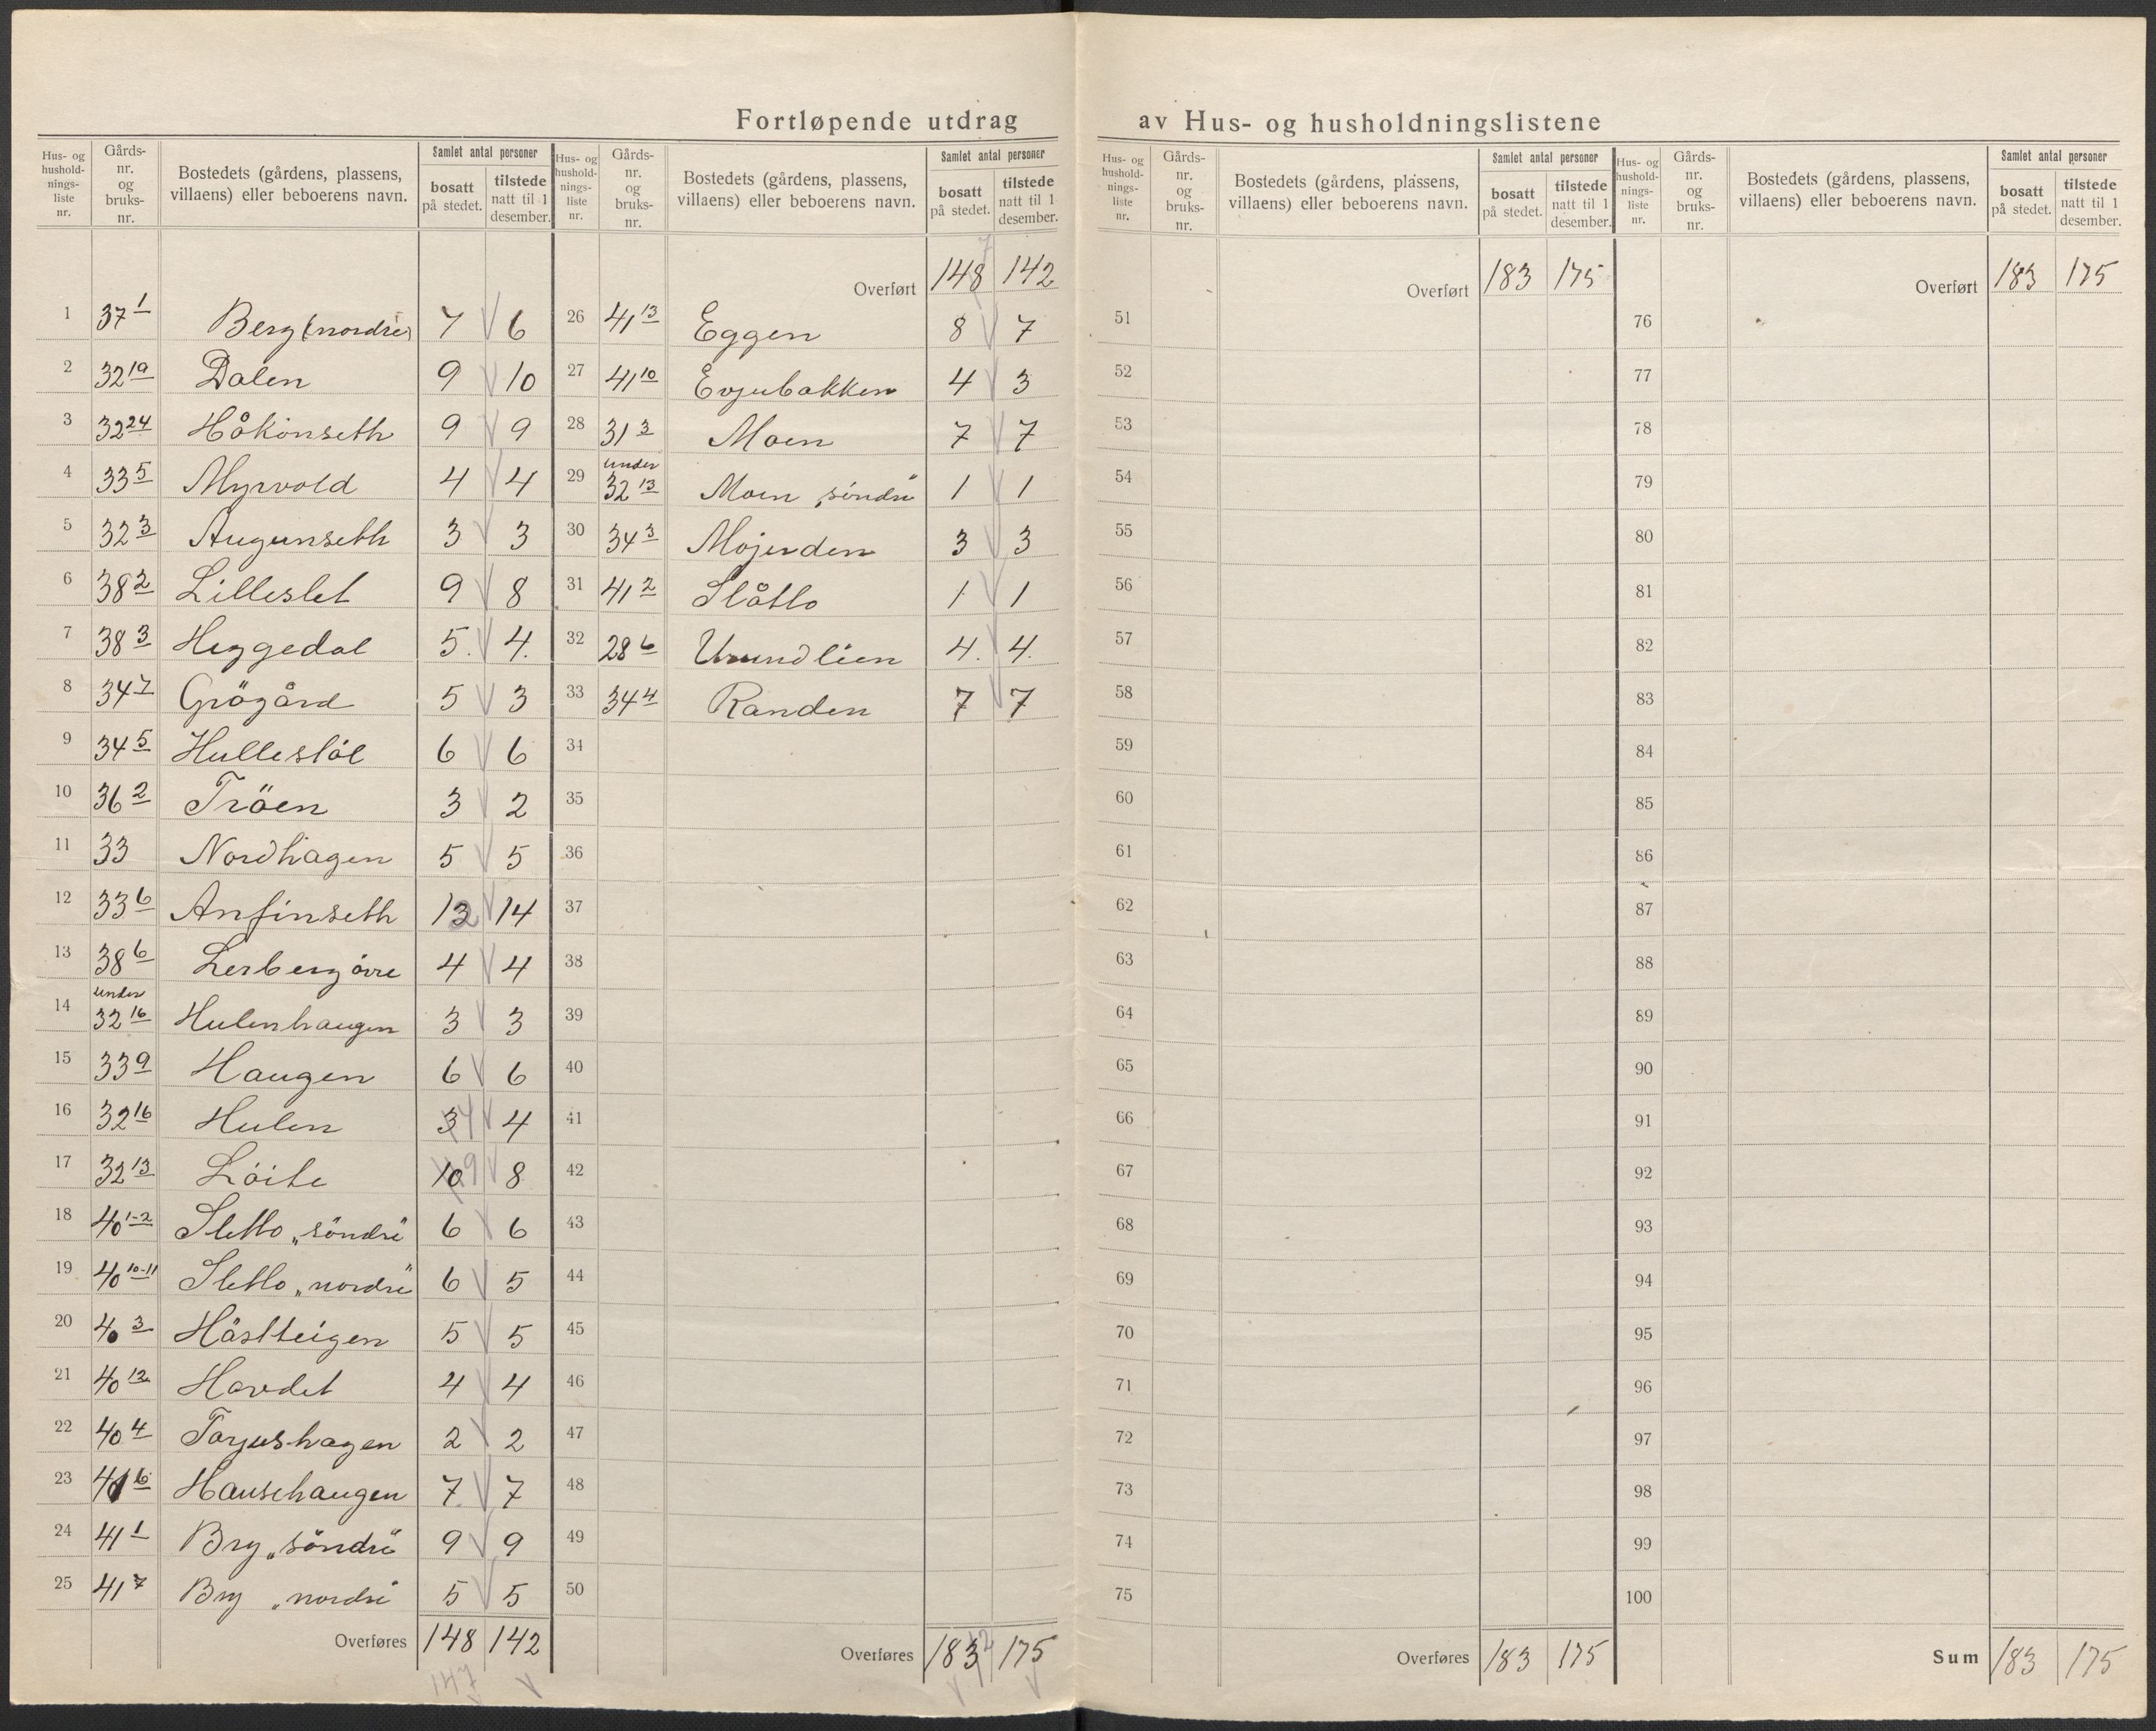 Fortløpende utdrag av Hus- og husholdningslistene
Hus- og hushold- nings- liste nr. | Gårds- nr. og bruks- nr. | Bostedets (gårdens, plassens, villaens) eller beboerens navn. | Samlet antal personer | bosatt på stedet. | tilstede natt til 1 desember.
1 37 1 Berg (nordre) 7 6
2 32 19 Dalen 9 10
3 32 24 Håkonseth 9 9
4 33 5 Myrvold 4 4
5 32 3 Augunseth 3 3
6 38 2 Lilleslet 9 8
7 38 3 Heggedal 5. 4.
8 34 7 Grögård 5 3
9 34 5 Hullestöl 6 6
10 36 2 Tröen 3 2
11 33 Nordhagen 5 5
12 33 6 Anfinseth 12 14
13 38 6 Lerberg övre 4 4
14 under 32 16 Hulenhaugen 3 3
15 33 9 Haugen 6 6
16 32 16 Hulen 3 4 4
17 32 13 Löite 10 9 8
18 40 1-2 Sletto „söndre" 6 6
19 40 10-11 Sletto „nordre" 6 5
20 40 3 Håstteigen 5 5
21 40 12 Hovdet 4 4
22 40 4 Tarjushagen 2 2
23 41 6 Hausehaugen 7 7
24 41 1 Bry „söndre" 9 9
25 41 7 Bry „nordre" 5 5
Overføres 148 142
147
Hus- og hushold- nings- liste nr. | Gårds- nr. og bruks- nr. | Bostedets (gårdens, plassens, villaens) eller beboerens navn. | Samlet antal personer | bosatt på stedet. | tilstede natt til 1 desember.
7
Overført 148 142
26 41 13 Eggen 8 7
27 41 10 Evjubakken 4 3
28 31 3 Moen 7 7
29 under 32 13 Moen „söndre" 1 1
30 34 3 Mojorden 3 3
31 41 2 Slåtto 1 1
32 28 6 Urundlien 4. 4.
33 34 4 Randen 7 7
34
35
36
37
38
39
40
41
42
43
44
45
46
47
48
49
50
Overføres 183 2 175
Hus- og hushold- nings- liste nr. | Gårds- nr. og bruks- nr. | Bostedets (gårdens, plassens, villaens) eller beboerens navn. | Samlet antal personer | bosatt på stedet. | tilstede natt til 1 desember.
Overført 183 175
51
52
53
54
55
56
57
58
59
60
61
62
63
64
65
66
67
68
69
70
71
72
73
74
75
Overføres 183 175
Hus- og hushold- nings- liste nr. | Gårds- nr. og bruks- nr. | Bostedets (gårdens, plassens, villaens) eller beboerens navn. | Samlet antal personer | bosatt på stedet. | tilstede natt til 1 desember.
Overført 183 175
76
77
78
79
80
81
82
83
84
85
86
87
88
89
90
91
92
93
94
95
96
97
98
99
100
Sum 183 175